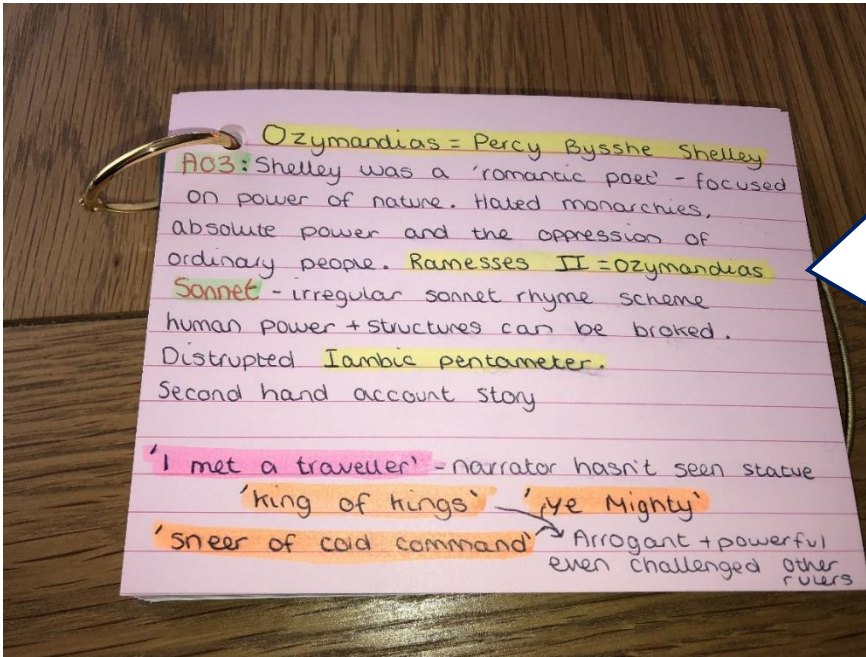 Ozymandias = Percy Bysshe Shelley
AO3: Shelley was a 'romantic poet' - focused
on power of nature. Hated monarchies,
absolute power and the oppression of
ordinary people. Ramesses II = Ozymandias
Sonnet - irregular sonnet rhyme scheme
human power + structures can be broked.
Distrupted Iambic pentameter.
Second hand account story
'I met a traveller' - narrator hasn't seen statue
'King of kings' 'ye Mighty'
'sneer of cold command' Arrogant + powerful
even challenged other
rulers